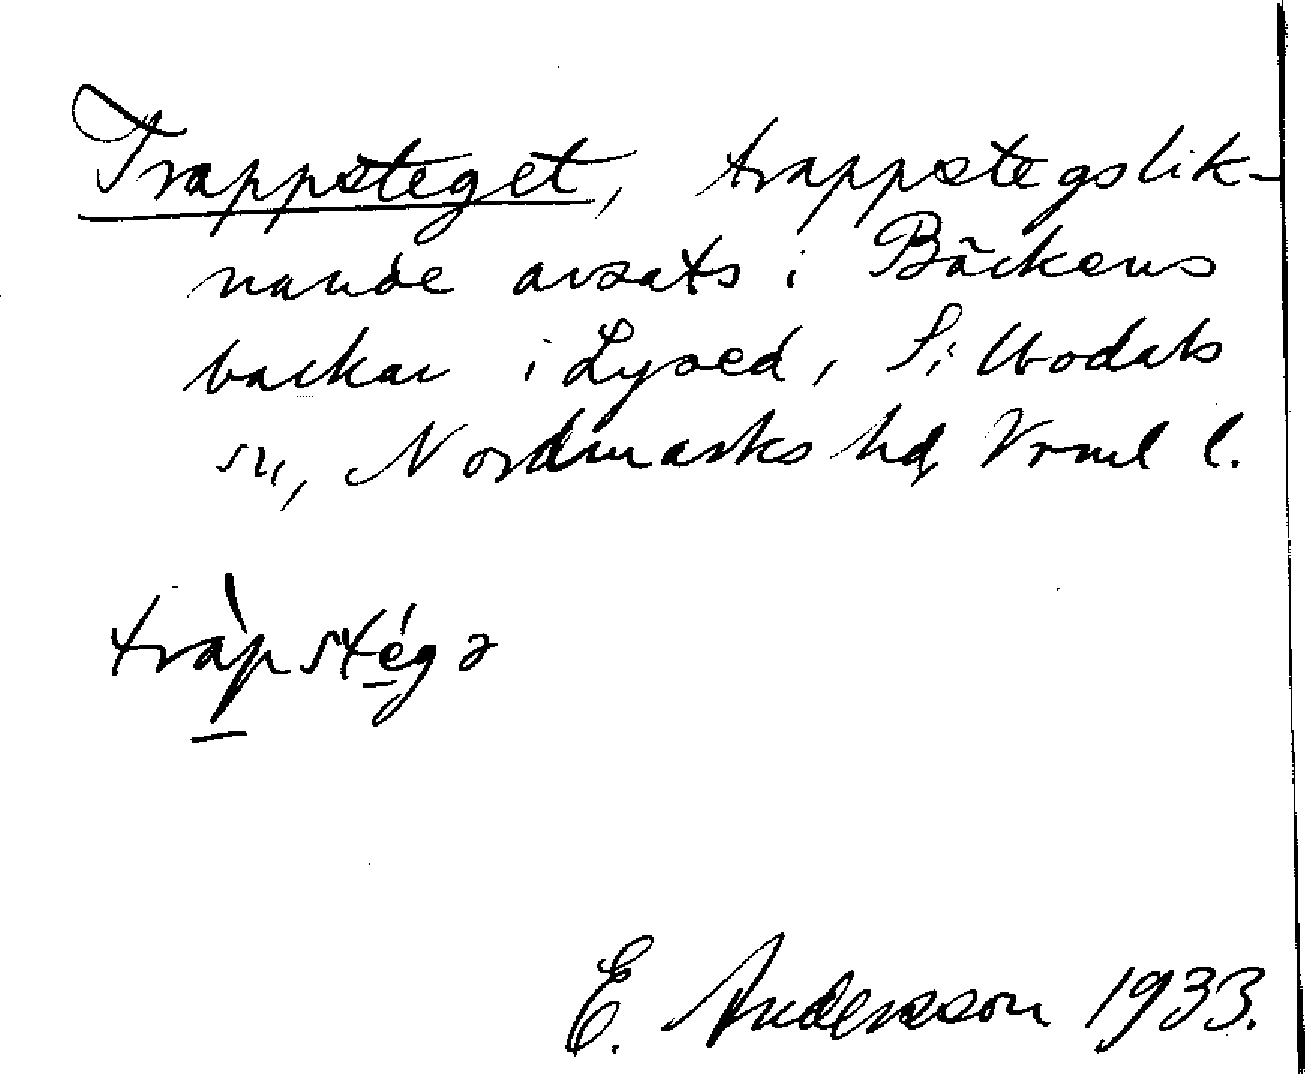 Trappsteget, trappstegslik-
nande avsats i Bäckens
backar i Lysed, Sillbodals
sn, Nordmarks hd, Vrml l.
tràpstégə
E. Andersson 1933.